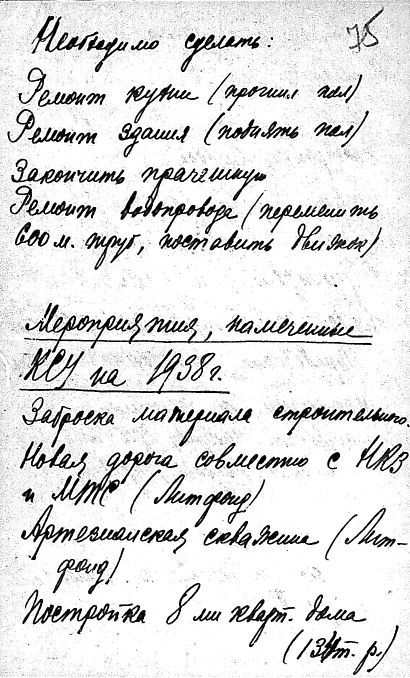 75
Необходимо сделать:
Ремонт кухни (прогнил пол)
Ремонт здания (поднять пол)
Закончить прачешную
Ремонт водопровода (переменить
600 м. труб, поставить движок)
Мероприятия, намеченные
КСУ на 1938 г.
Заброска материала строительного.
Новая дорога совместно с НКЗ
и МТС (Литфонд)
Артезианская скважина (Лит-
фонд)
Постройка 8 ми кварт. дома
т. р.)